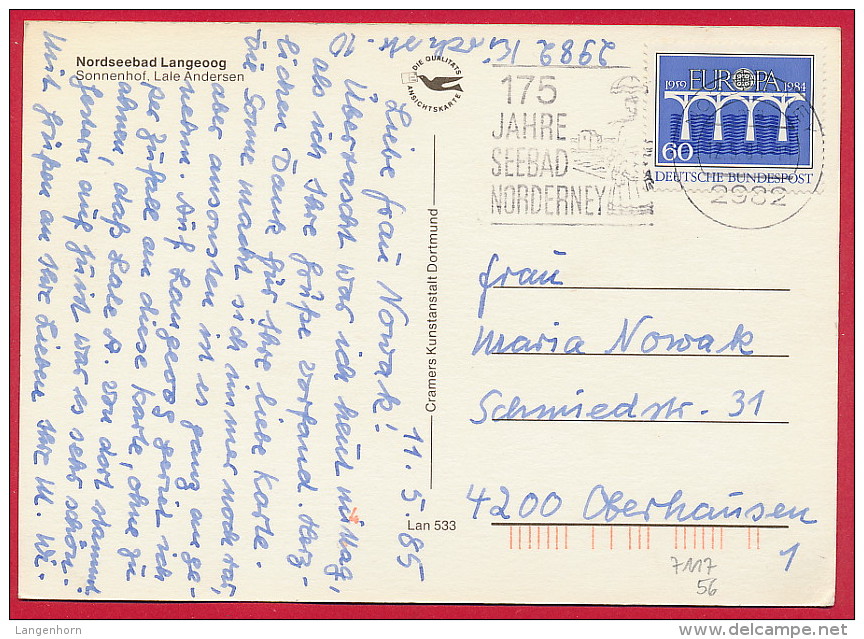 Nordseebad Langeoog
Sonnenhof, Lale Andersen
DIE QUALITÄTS
ANSICHTSKARTE
2982
11. 5. 85
Liebe Frau Nowak!
Überrascht war ich heut mittag,
als ich Ihre Grüße vorfand. Herz-
lichen Dank für Ihre liebe Karte.
Die Sonne macht sich immer noch rar,
aber ansonsten ist es ganz ange-
nehm. Auf Langeoog geriet ich
per Zufall an diese Karte, ohne zu
ahnen, daß Lale A. von dort stammt.
Gestern auf Juist war es sehr schön.
Mit Grüßen an Ihre Lieben Ihre M. Wi.
Cramers Kunstanstalt Dortmund
Lan 533
175
JAHRE
SEEBAD
NORDERNEY
2982
1959 EUROPA 1984
60
DEUTSCHE BUNDESPOST
Frau
Maria Nowak
Schmiedstr. 31
4200 Oberhausen
1
7117
56
Langenhorn
delcampe.net